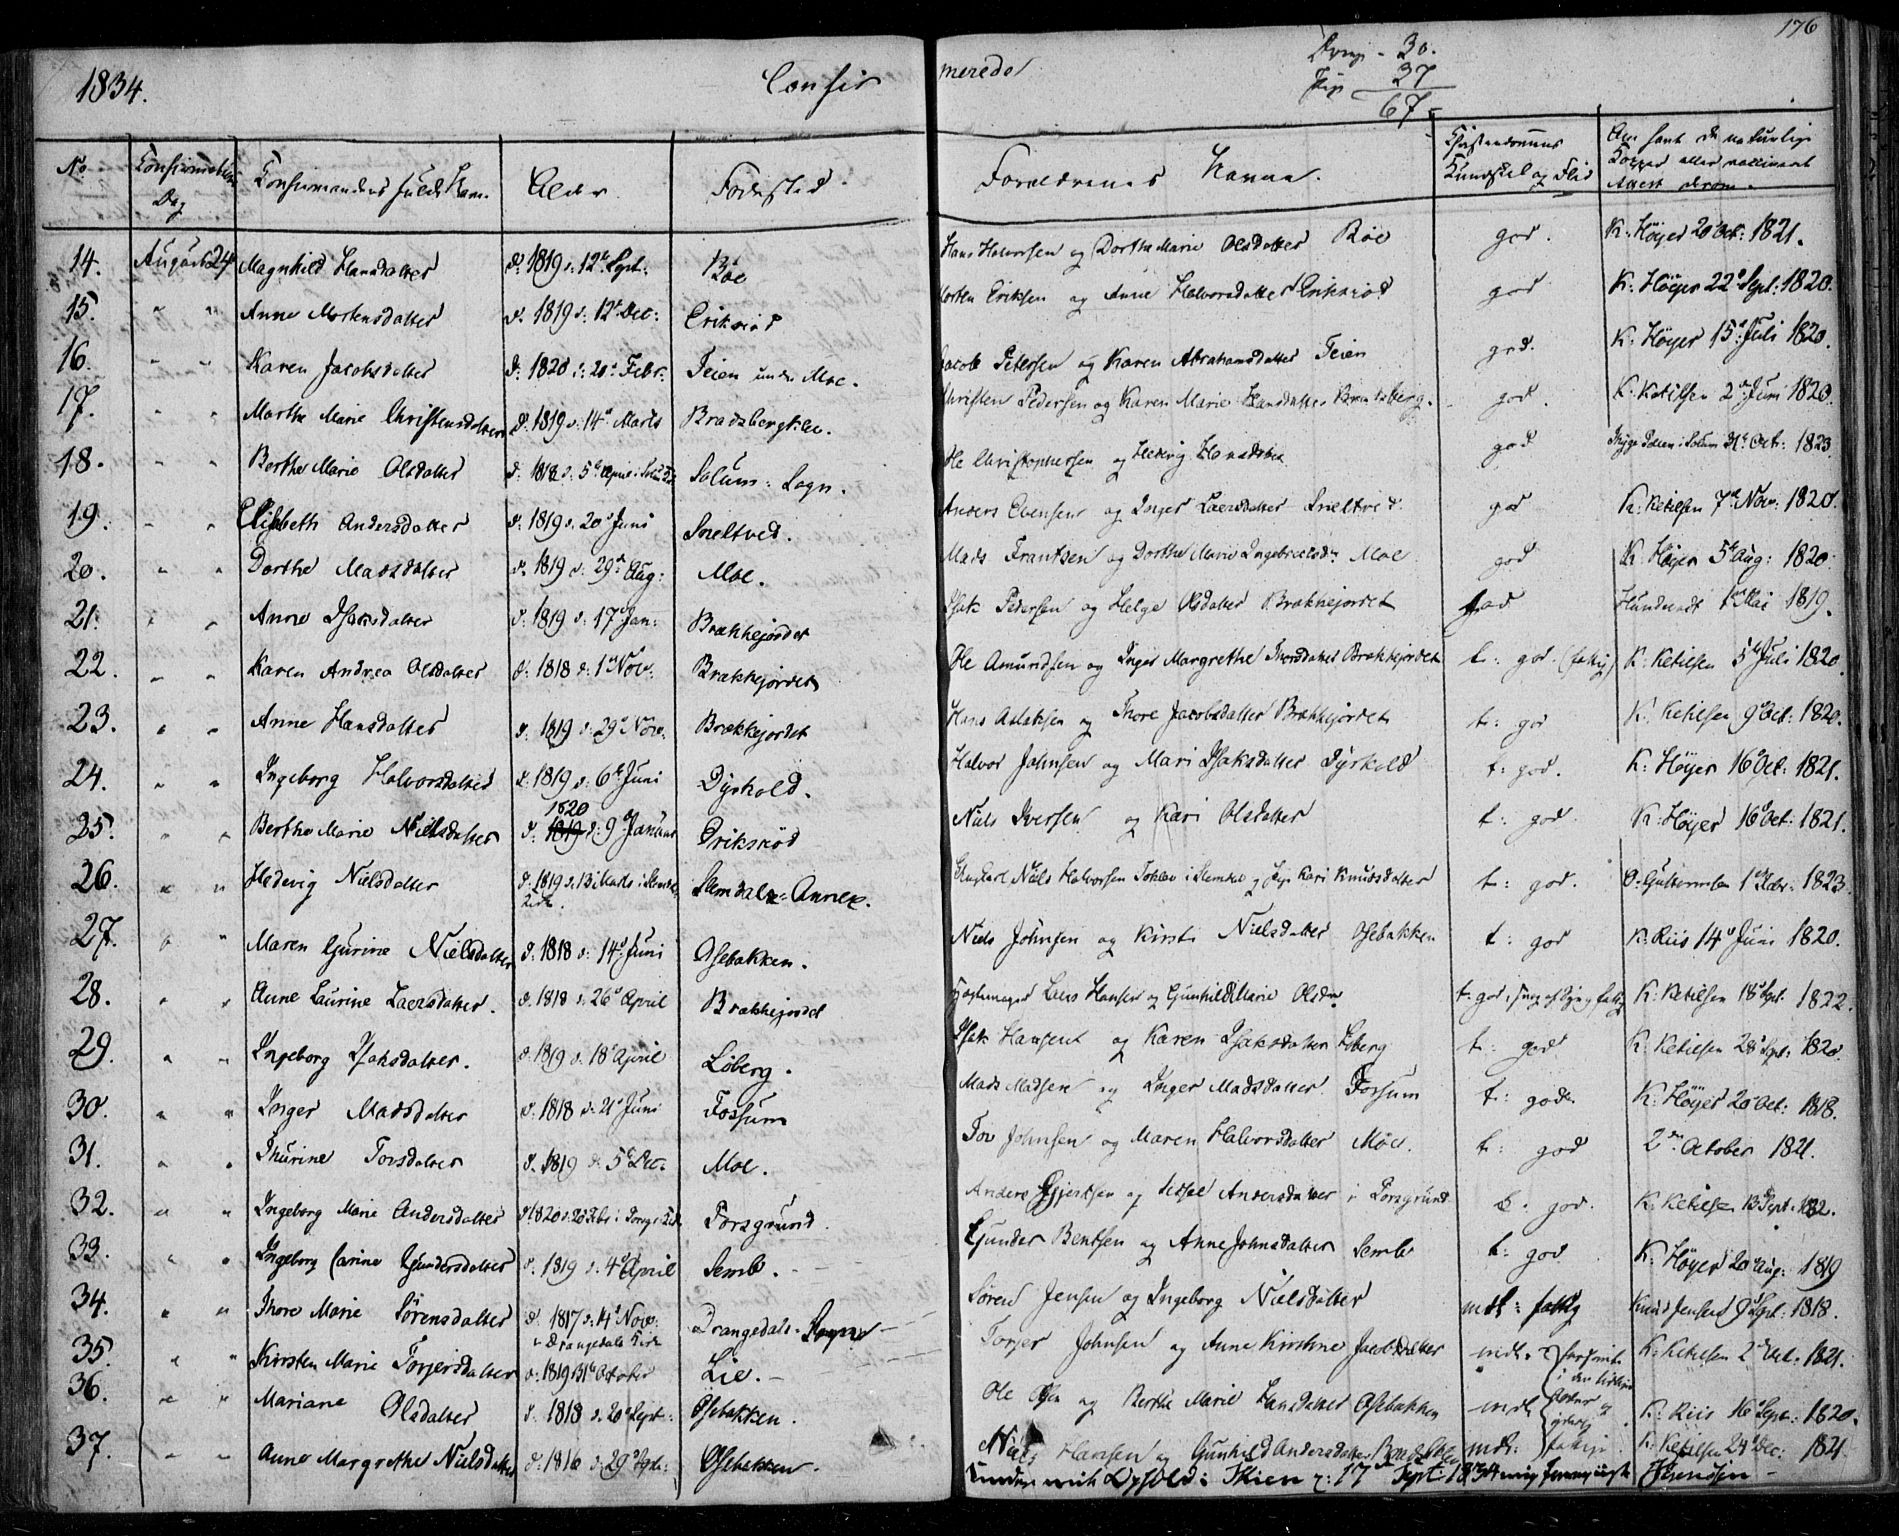 176
1834. Confirmerede
Drenge - 30.
Pig 37
67
No Confirmations Dag Confirmandens fulde Navn. Alder Fødested. Forældrenes Navne. Christendoms Kundskab og Flid Om havt de naturlige Kopper eller vaccineret Attest derom.
14. August 24 Magnhild Hansdatter d: 1819 d: 12te Sept: Böe Hans Halvorsen og Dorthe Marie Olsdatter Böe god. K: Höyer 20 Oct: 1821.
15. " " Anne Mortensdatter d. 1819 d: 12te Dec: Eriksröd Morten Eriksen og Anne Halvorsdatter Eriksröd god K: Höyer 22d Sept: 1820.
16. " " Karen Jacobsdatter d: 1820 d: 20d Febr: Feien under Moe. Jacob Petersen og Karen Abrahamsdatter Feien god. K: Höyer 15d Juli 1820.
17. " " Marthe Marie Christensdatter d: 1819 d: 14d Marts Bradsbergklev. Christen Pedersen og Karen Marie Hansdatter Bradsberg. god. K: Ketilsen 2den Juni 1820.
18. " " Berthe Marie Olsdatter d: 1818 d: 5te April i Solum Kirke Solum: Sogn. Ole Christophersen og Hedevig god Solum 31te Oct: 1823.
19. " " Elisabeth Andersdatter d: 1819 d: 20d Juni Sneltved. Anders Evensen og Inger Laersdatter Sneltved. god K: Ketilsen 7de Nov: 1820.
20. " " Dorthe Madsdatter d. 1819 d: 29de Aug: Moe. Mads Frantsen og Dorthe Marie Ingebretsdr Moe god K: Höyer 5te Aug: 1820.
21. " " Anne Isaksdatter d. 1819 d: 17d Jan: Brækkejordet Isak Pedersen og Helge Olsdatter Brækkejordet god Mai 1819.
22. " " Karen Andrea Olsdatter d: 1818 d: 1ste Nov: Brækkejordet Ole Amundsen og Inger Margrethe Thorsdatter Brækkejordet t: god. (fattig) K: Ketilsen 5te Juli 1820.
23. " " Anne Hansdatter d: 1819 d: 29d Nov: Brækkejordet Hans Aslaksen og Thore Jacobsdatter Brækkejordet t: god K: Ketilsen 9d Oct: 1820.
24. " " Ingeborg Halvorsdatter d: 1819 d: 6te Juni Dyrkold. Halvor Johnsen og Mari Isaksdatter Dyrkold t: god. K: Höyer 16d Oct: 1821.
25. " " Berthe Marie Nielsdatter d. 1819 1820 d: 9d Januar Eriksröd Niels Iversen og Kari Olsdatter t: god. K: Höyer 16d Oct: 1821.
26. " " Hedevig Nielsdatter d: 1819 d. 13 Marts i Slemdals Kirke. Slemdals: Annex. Niels Halvorsen i Slemdal og Pige Kari Knudsdatter t: god. 1823.
27. " " Maren Gurine Nielsdatter d. 1818 d: 14d Juni Osebakken. Niels Johnsen og Kirsti Nielsdatter Osebakken t: god K: Riis 14d Juni 1820.
28. " " Anne Laurine Laersdatter. d. 1818 d. 26d April Brækkejordet Laers Hansen og Gunhild Marie Olsdr t: god K: Ketilsen 18d Sept: 1822.
29. " " Ingeborg Isaksdatter. d: 1819 d. 18d April Löberg. Isak Hansen og Karen Isaksdatter Löberg t: god K: Ketilsen 28d Sept: 1820.
30. " " Inger Madsdatter d. 1818 d: 21d Juni Fossum Mads Madsen og Inger Madsdatter Fossum t: god. K: Höyer 20d Oct: 1818.
31. " " Thurine Torsdatter d. 1819 d: 5te Dec: Moe. Tov Johnsen og Maren Halvorsdatter Moe. t: god 2den October 1821.
32. " " Ingeborg Marie Andersdatter d. 1820 d: Febr: i Porsgr: Kirke Porsgrund. Anders Gjertsen og Sidsel Andersdatter i Porsgrund t: god. K: Ketilsen 13d Sept.
33. " " Ingeborg Carine Gundersdatter d. 1819 d. 4d April Semb. Gunder Bentsen og Anne Johnsdatter Semb t: god K: Höyer 20d Aug: 1819
34. " " Thore Marie Sörensdatter d. 1817 d: 14d Nov: i Drangedals Kirke Drangedals: Sogn Sören Jensen og Ingeborg Nielsdatter mdl: fattig Knud Jensen Sept. 1818.
35. " " Kirsten Marie Torjersdatter d: 1819 31te October Lie. Torjer Johnsen og Anne Kirstine Jacobsdatter mdl. K: Ketilsen 2d Oct: 1821.
36. " " Mariane Olsdatter d. 1818 d. 20d Sept: Osebakken. Ole Olsen og Berthe Marie Hansdatter Osebakken mdl K: Riis 16d Sept: 1820.
37. " " Anne Margrethe Nielsdatter d: 1816 d. 29d Sept: Osebakken. Niels Hansen og Gunhild Andersdatter mdl: fattige. K: Ketilsen 24d Dec: 1821.
Skien d: 17 Sept: 1834